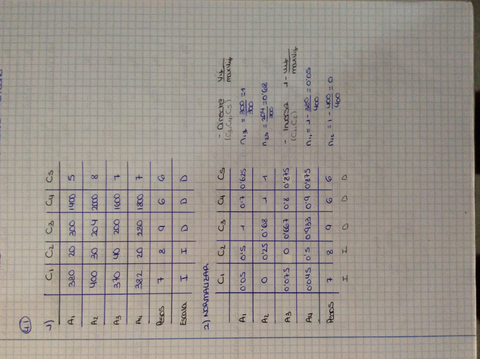 4.1
1)
C1 C2 C3 C4 C5
A1 380 20 300 1400 5
A2 400 30 204 2000 8
A3 370 40 200 1600 7
A4 382 20 280 1800 7
Pesos 7 8 9 6 6
Escala I I D D D
2) NORMALIZAR
C1 C2 C3 C4 C5
A1 0'05 0'5 1 0'7 0'625
A2 0 0'25 0'68 1 1
A3 0'075 0 0'667 0'8 0'875
A4 0'045 0'5 0'933 0'9 0'875
Pesos 7 8 9 6 6
I I D D D
- Directa Vij / maxVij
(C3, C4, C5)
n13 = 300/300 = 1
n23 = 204/300 = 0'68
- Inversa 1 - Vij / maxVij
(C1, C2)
n11 = 1 - 380/400 = 0'05
n12 = 1 - 400/400 = 0